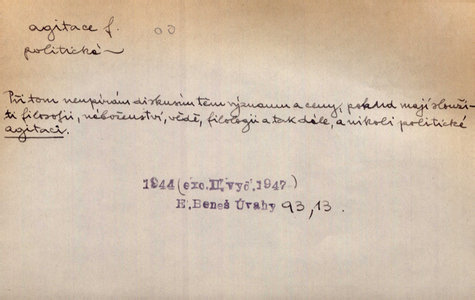 agitace f.
politická ~
Při tom neupírám diskusím těm významu a ceny, pokud mají slouži-
ti filosofii, náboženství, vědě, filologii a tak dále, a nikoli politické
agitaci.
1944 (exc.II.vyč.1947)
E.Beneš Úvahy 93,13.